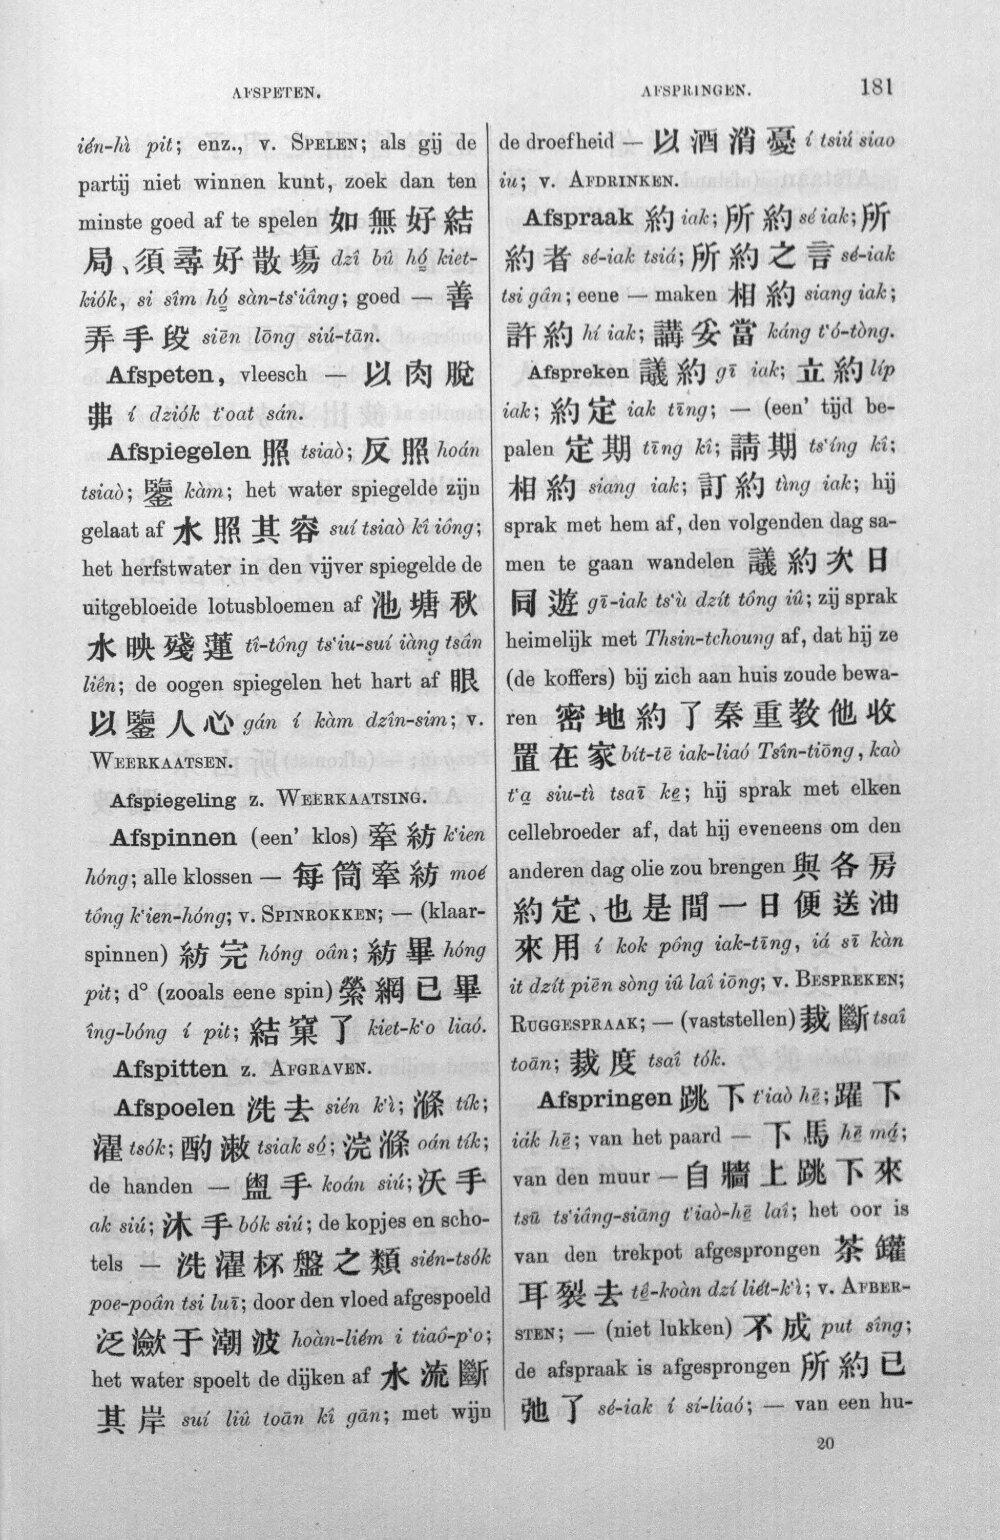 AFSPETEN.
AFSPRINGEN.
181
ién-hì pit; enz., v. SPELEN; als gij de
partij niet winnen kunt, zoek dan ten
minste goed af te spelen 如無好結
局、須尋好散塲 dzî bû hó̤ kiet-
kiók, si sîm hó̤ sàn-ts'iâng; goed — 善
弄手段 siēn lōng siú-tān.
Afspeten, vleesch — 以肉脫
弗 í dziók t'oat sán.
Afspiegelen 照 tsiaò; 反照 hoán
tsiaò; 鑒 kàm; het water spiegelde zijn
gelaat af 水照其容 suí tsiaò kî iông;
het herfstwater in den vijver spiegelde de
uitgebloeide lotusbloemen af 池塘秋
水映殘蓮 tî-tông ts'iu-suí iàng tsân
liên; de oogen spiegelen het hart af 眼
以鑒人心 gán í kàm dzîn-sim; v.
WEERKAATSEN.
Afspiegeling z. WEERKAATSING.
Afspinnen (een' klos) 牽紡 k'ien
hóng; alle klossen — 每筒牽紡 moé
tông k'ien-hóng; v. SPINROKKEN; — (klaar-
spinnen) 紡完 hóng oân; 紡畢 hóng
pit; d° (zooals eene spin) 縈網已畢
îng-bóng í pit; 結窠了 kiet-k'o liaó.
Afspitten z. AFGRAVEN.
Afspoelen 洗去 sién k'ì; 滌 tík;
濯 tsók; 酌漱 tsiak só̤; 浣滌 oán tík;
de handen — 盥手 koán siú; 沃手
ak siú; 沐手 bók siú; de kopjes en scho-
tels — 洗濯杯盤之類 sién-tsók
poe-poân tsi luī; door den vloed afgespoeld
泛瀲于潮波 hoàn-liém i tiaô-p'o;
het water spoelt de dijken af 水流斷
其岸 suí liû toān kî gān; met wijn
de droefheid — 以酒消憂 í tsiú siao
iu; v. AFDRINKEN.
Afspraak 約 iak; 所約 sé iak; 所
約者 sé-iak tsiá; 所約之言 sé-iak
tsi gân; eene — maken 相約 siang iak;
許約 hí iak; 講妥當 káng t'ó-tòng.
Afspreken 議約 gī iak; 立約 líp
iak; 約定 iak tīng; — (een' tijd be-
palen 定期 tīng kî; 請期 ts'íng kî;
相約 siang iak; 訂約 tìng iak; hij
sprak met hem af, den volgenden dag sa-
men te gaan wandelen 議約次日
同遊 gī-iak ts'ù dzít tông iû; zij sprak
heimelijk met Thsin-tchoung af, dat hij ze
(de koffers) bij zich aan huis zoude bewa-
ren 密地約了秦重教他收
置在家 bít-tē iak-liaó Tsîn-tiōng, kaò
t'a̤ siu-tì tsaī ke̤; hij sprak met elken
cellebroeder af, dat hij eveneens om den
anderen dag olie zou brengen 與各房
約定、也是間一日便送油
來用 í kok pông iak-tīng, iá sī kàn
it dzít piēn sòng iû laî iōng; v. BESPREKEN;
RUGGESPRAAK; — (vaststellen) 裁斷 tsaî
toān; 裁度 tsaî tók.
Afspringen 跳下 t'iaò hē̤; 躍下
iák hē̤; van het paard — 下馬 hē̤ má̤;
van den muur — 自牆上跳下來
tsū ts'iâng-siāng t'iaò-hē̤ laî; het oor is
van den trekpot afgesprongen 茶鑵
耳裂去 tê̤-koàn dzí liét-k'ì; v. AFBER-
STEN; — (niet lukken) 不成 put sîng;
de afspraak is afgesprongen 所約已
弛了 sé-iak í sí-liaó; — van een hu-
20